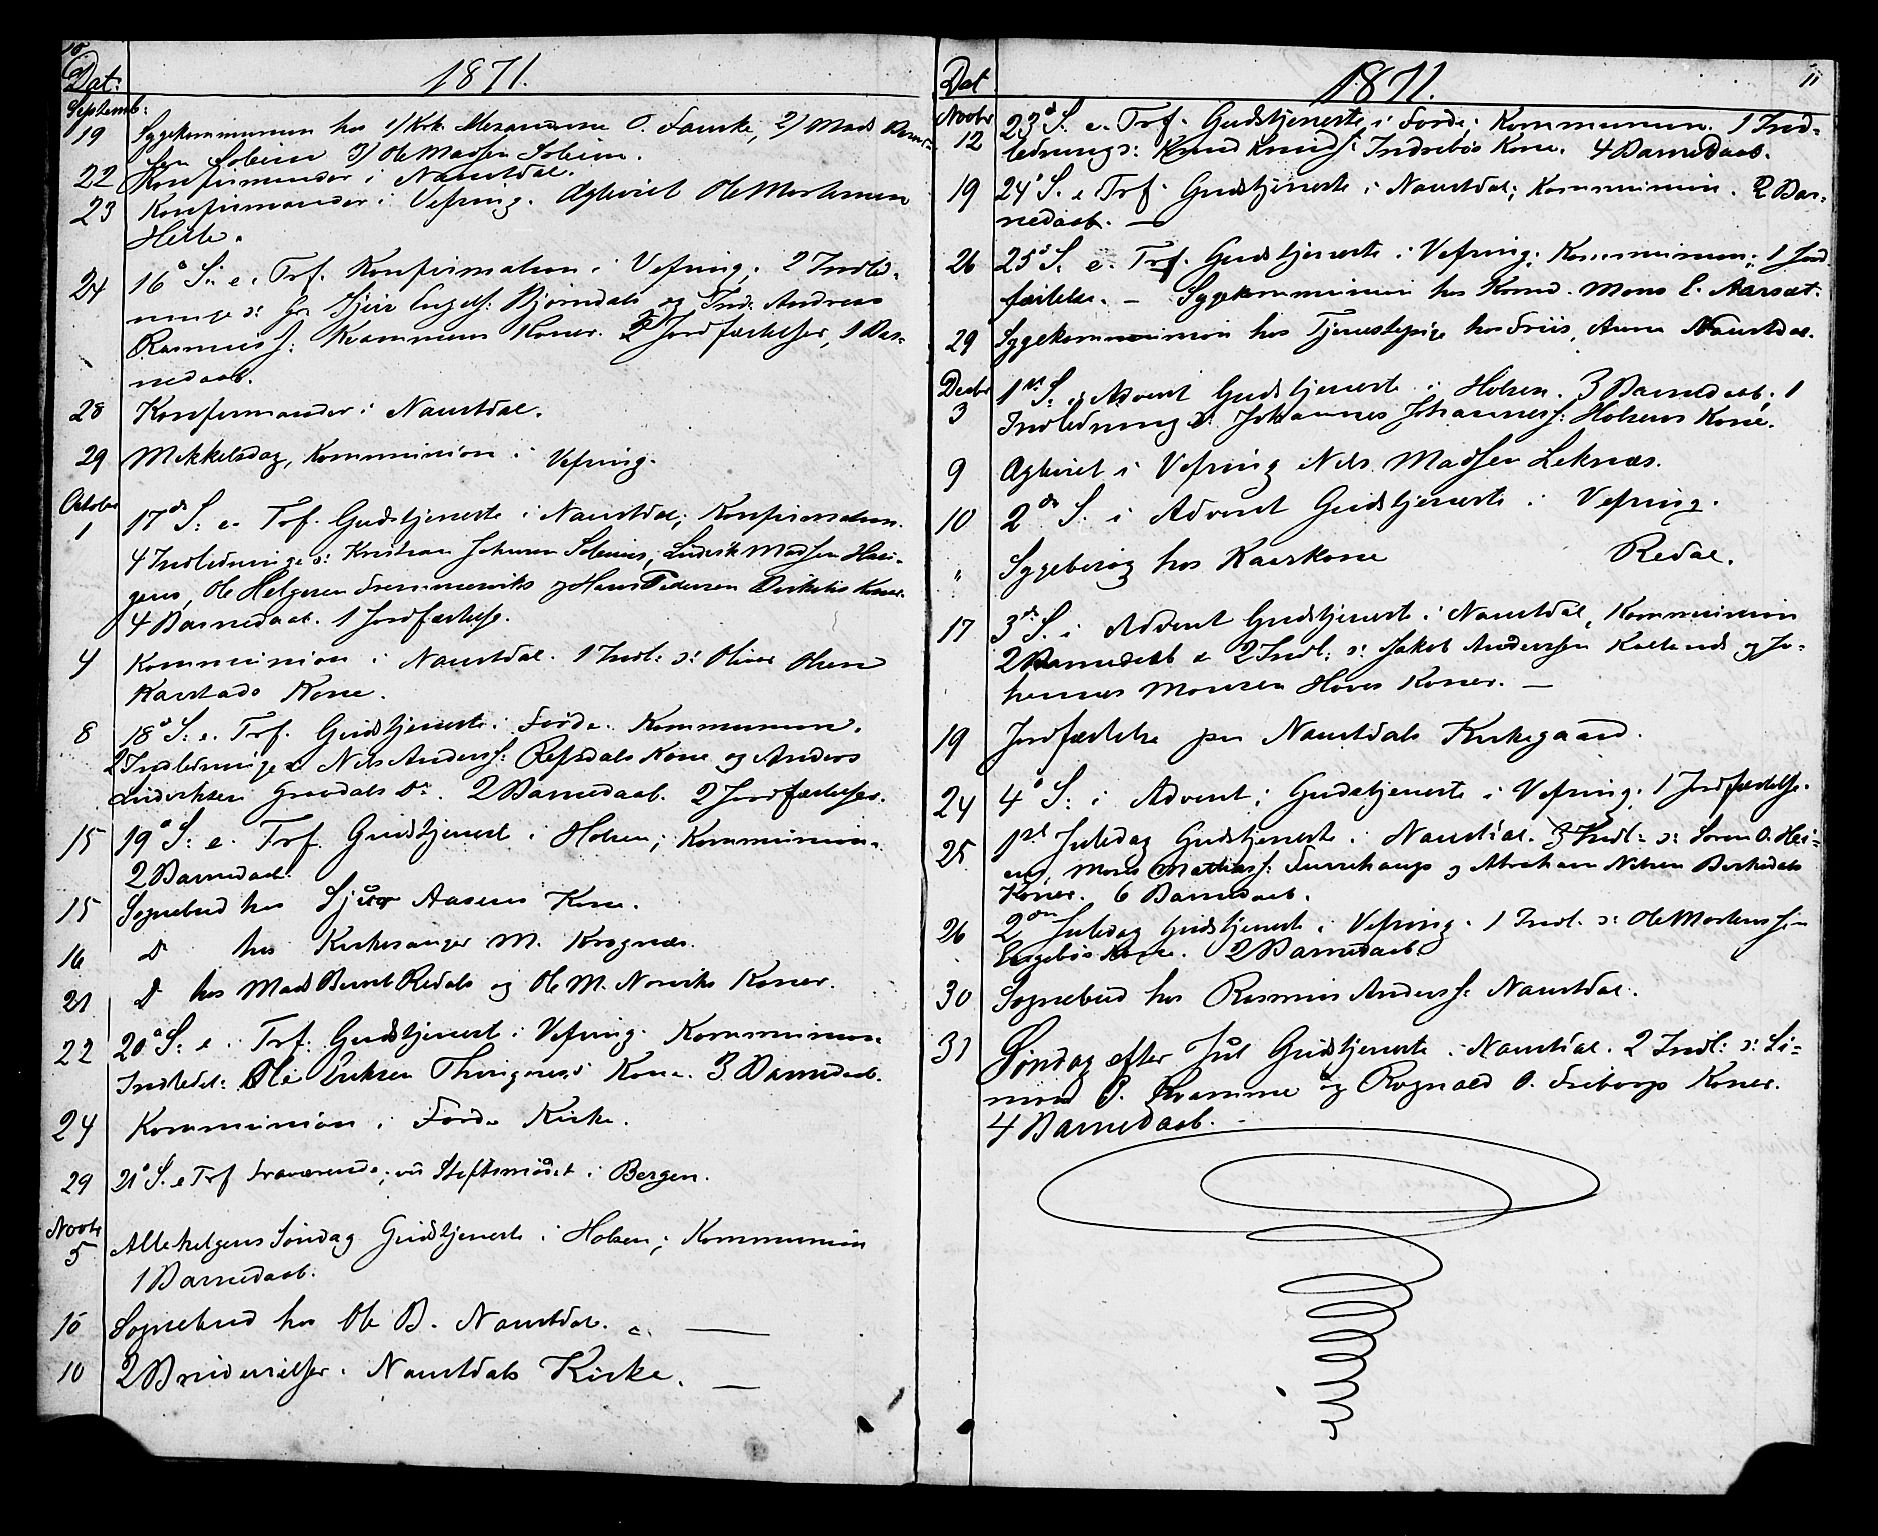 10
Dat:
1871.
Septemb:
19 Sygekommunion hos 1) Kirk. O. Fauske, 2) Mads
sen Solheim 3) Ole Madsen Solheim.
22 Konfirmander i Naustdal.
23 Konfirmander i Vefring. Ægteviet Ole Mortensen
Helle.
24 16de S: e. Trf. Konfirmation i Vefring. 2 Indled-
ninge ɔ: Bjørndals og Andreas
Rasmuss: Kvammens Koner. 2 Jordfæstelser, 1 Bar-
nedaab.
28 Konfirmander i Naustdal.
29 Mikkelsdag, Kommunion i Vefring.
October
1 17de S: e. Trf. Gudstjeneste i Naustdal; Konfirmation.
4 Indledninge ɔ: Kristian Johnsen Solheims, Ludvik Madsen
Ole Helgesen og Hans Pedersen Koner.
4 Barnedaab. 1 Jordfæstelse.
4 Kommunion i Naustdal. 1 Indl: ɔ: Oliver Olsen
Karstads Kone.
8 18de S: e. Trf. Gudstjeneste i Førde. Kommunion.
2 Indledninge ɔ: Nils Anderss: Refsdals Kone og Anders
Do. 2 Barnedaab. 2 Jordfæstelser.
15 19de S: e. Trf. Gudstjeneste i Holsen; Kommunion.
2 Barnedaab.
15 Sognebud hos Sjur Aasens Kone.
16 Do hos Kirkesanger M. Krognæs.
21 Do hos Mads Berent Redals og Ole M. Koner.
22 20de S: e. Trf. Gudstjeneste i Vefring. Kommunion.
Indledn: Ole Eriksen Thingnes's Kone. 3 Barnedaab.
24 Kommunion i Førde Kirke.
29 21de S. e Trf fraværende; ved Stiftsmødet i Bergen.
Novbr
5 Allehelgens Søndag Gudstjeneste i Holsen; Kommunion
1 Barnedaab.
10 Sognebud hos Ole B. Naustdal.
10 2 Brudevielser i Naustdals Kirke.
11
Dat
1871.
Novbr
12 23de S. e. Trf. Gudstjeneste i Førde; Kommunion. 1 Ind-
ledning ɔ: Knud Knuds: Indrebøs Kone. 4 Barnedaab.
19 24de S. e Trf. Gudstjeneste i Naustdal; Kommunion. 2 Bar-
nedaab. —
26 25de S. e. Trf. Gudstjeneste i Vefring; Kommunion; 1 Jord-
fæstelse. — Sygekommunion hos Mons E. Aarsæt.
29 Sygekommunion hos Tjenestepige hos Friis, Anna Naustdal.
Decbr
3 1ste S. i Advent Gudstjeneste i Holsen. 3 Barnedaab; 1
Indledning ɔ: Johannes Johanness: Holsens Kone.
9 Ægteviet i Vefring Nils Madsen Leknæs.
10 2den S. i Advent Gudstjeneste i Vefring.
" Sygebesøg hos Kaarkone Redal.
17 3de S. i Advent Gudstjeneste i Naustdal, Kommunion
2 Barnedaab & 2 Indl: ɔ: Jakob Anderssen Kallands og Jo-
hannes Monsen Hoves Koner. —
19 Jordfæstelse paa Naustdals Kirkegaard.
24 4de S: i Advent; Gudstjeneste i Vefring; 1 Jordfæstelse.
25 1ste Juledag Gudstjeneste i Naustdal. 3 Indl: ɔ: Søren O. Hei-
Mons Mathiass: Furehaugs og Abraham Nilsen Birkedals
Koner. 6 Barnedaab.
26 2den Juledag Gudstjeneste i Vefring. 1 Indl. ɔ: Ole Mortenssen
Engebøs Kone. 2 Barnedaab.
30 Sognebud hos Rasmus Anderss: Naustdal.
31 Søndag efter Jul Gudstjeneste i Naustdal. 2 Indl: ɔ: Si-
mon P. Kvamme og Rognald O. Frøborgs Koner.
4 Barnedaab. -